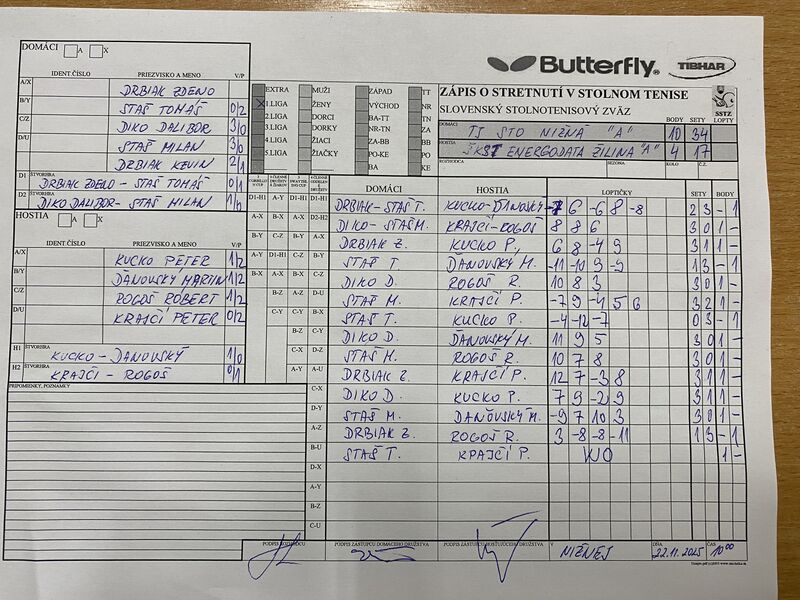 DOMÁCI A X
Butterfly
TIBHAR
IDENT.ČÍSLO PRIEZVISKO A MENO V/P
A/X DRBIAK ZDENO
B/Y STAŠ TOMÁŠ 0/2
C/Z DIKO DALIBOR 3/0
D/U STAŠ MILAN 3/0
DRBIAK KEVIN 2/1
D1 ŠTVORHRA DRBIAK ZDENO - STAŠ TOMÁŠ 0/1
D2 ŠTVORHRA DIKO DALIBOR - STAŠ MILAN 1/0
HOSTIA A X
IDENT.ČÍSLO PRIEZVISKO A MENO V/P
A/X KUCKO PETER 1/2
B/Y ĎANOVSKÝ MARTIN 1/2
C/Z ROGOŠ RÓBERT 1/2
D/U KRAJČÍ PETER 0/2
H1 ŠTVORHRA KUCKO - ĎANOVSKÝ 1/0
H2 ŠTVORHRA KRAJČÍ - ROGOŠ 0/1
PRIPOMIENKY, POZNÁMKY
EXTRA MUŽI ZÁPAD TT
X 1.LIGA ŽENY VÝCHOD NR
2.LIGA DORCI BA-TT TN
3.LIGA DORKY NR-TN ZA
4.LIGA ŽIACI ZA-BB BB
5.LIGA ŽIAČKY PO-KE PO
BA KE
ZÁPIS O STRETNUTÍ V STOLNOM TENISE
SLOVENSKÝ STOLNOTENISOVÝ ZVÄZ
SSTZ
BODY SETY LOPTY
DOMÁCI TJ STO NIŽNÁ "A" 10 34
HOSTIA ŠKST ENERGODATA ŽILINA "A" 4 17
ROZHODCA SEZONA KOLO Č.Z.
DOMÁCI HOSTIA LOPTIČKY SETY BODY
D1-H1 A-Y D1-H1 D1-H1 DRBIAK - STAŠ T. KUCKO - ĎANOVSKÝ -7 6 -6 8 -8 2 3 - 1
A-X B-X D2-H2 DIKO - STAŠ M. KRAJČÍ - ROGOŠ 8 8 6 3 0 1 -
B-Y C-Z B-Y A-X DRBIAK Z. KUCKO P. 6 8 -4 9 3 1 1 -
A-Y D1-H1 C-Z B-Y STAŠ T. ĎANOVSKÝ M. -11 -10 9 -9 1 3 - 1
B-X A-X B-X C-Z DIKO D. ROGOŠ R. 10 8 3 3 0 1 -
A-Z D-U STAŠ M. KRAJČÍ P. -7 9 -4 5 6 3 2 1 -
C-Y B-X STAŠ T. KUCKO P. -4 -12 -7 0 3 - 1
B-Z C-Y DIKO D. ĎANOVSKÝ M. 11 9 5 3 0 1 -
C-X D-Z STAŠ M. ROGOŠ R. 10 7 8 3 0 1 -
A-Y A-U DRBIAK Z. KRAJČÍ P. 12 7 -3 8 3 1 1 -
C-X DIKO D. KUCKO P. 7 9 -2 9 3 1 1 -
D-Y STAŠ M. ĎANOVSKÝ M. -9 7 10 3 3 0 1 -
A-Z DRBIAK Z. ROGOŠ R. 3 -8 -8 -11 1 3 - 1
B-U STAŠ T. KRAJČÍ P. WO 1 -
D-X
A-Y
B-Z
C-U
PODPIS ROZHODCU PODPIS ZÁSTUPCU DOMÁCEHO DRUŽSTVA PODPIS ZÁSTUPCU HOSŤUJÚCEHO DRUŽSTVA V NIŽNEJ DŇA 22.11.2025 ČAS 10 00